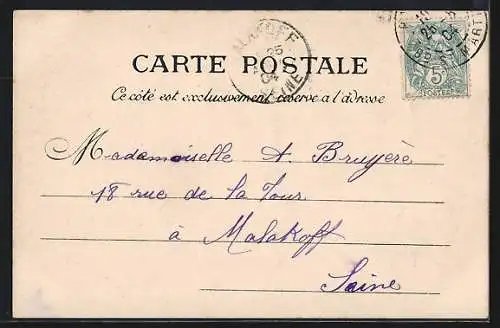 MALAKOFF
25
04
SEINE
25
04
ST MARTIN
5c
POSTES
CARTE POSTALE
Ce côté est exclusivement réservé a l'adresse
Mademoiselle A. Bruyère
18 rue de la Tour
à Malakoff
Seine